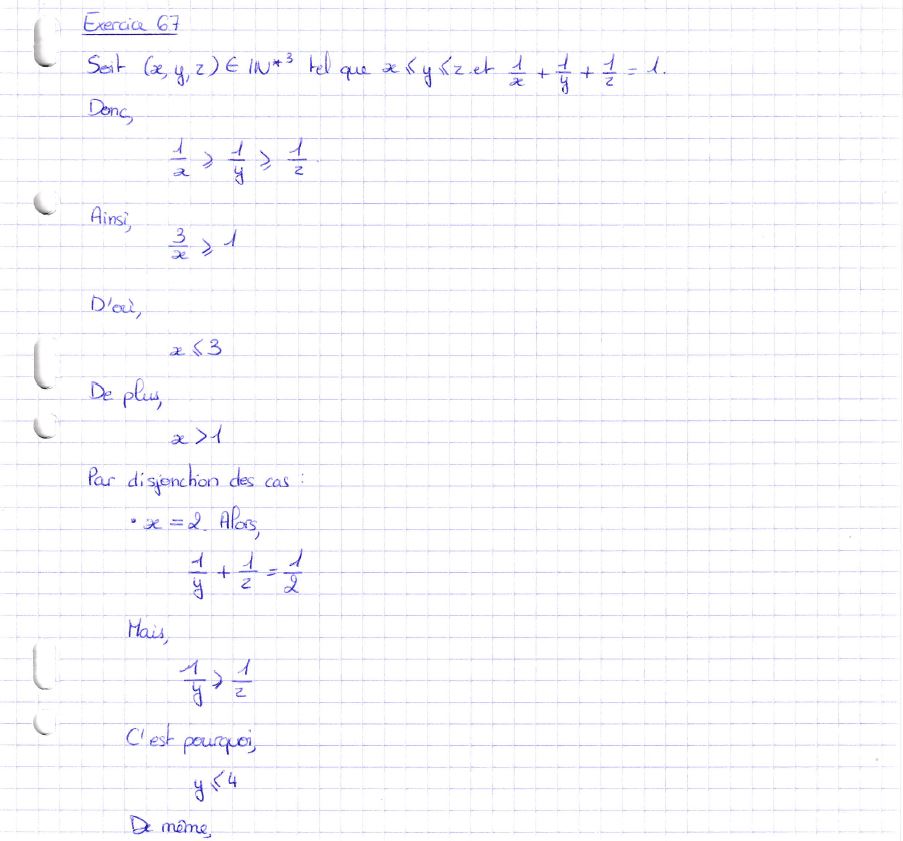 Exercice 67
Soit (x, y, z) ∈ ℕ*³ tel que x ⩽ y ⩽ z et 1/x + 1/y + 1/z = 1.
Donc,
1/x ⩾ 1/y ⩾ 1/z.
Ainsi,
3/x ⩾ 1
D'où,
x ⩽ 3
De plus,
x > 1
Par disjonction des cas :
• x = 2. Alors,
1/y + 1/z = 1/2
Mais,
1/y ⩾ 1/z
C'est pourquoi,
y ⩽ 4
De même,